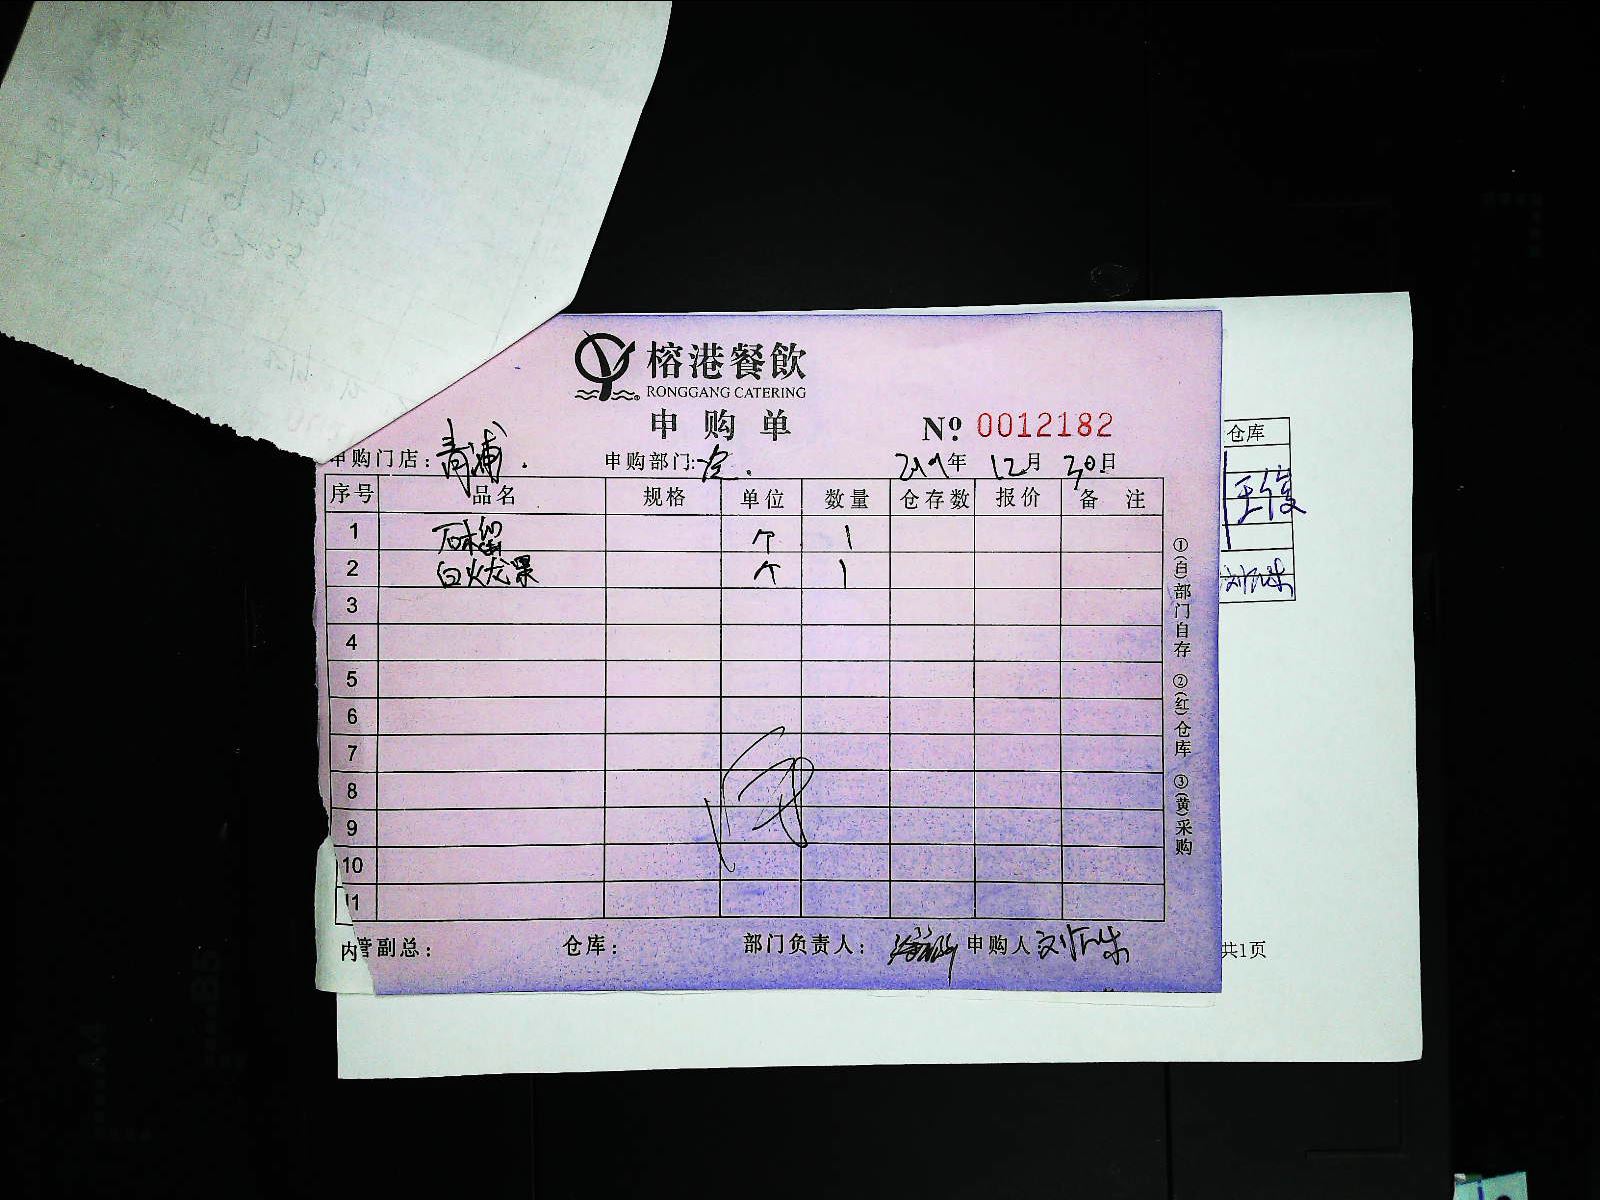 榕港餐飲
RONGGANG CATERING
申购单
№ 0012182
申购门店：青浦. 申购部门: 2019年 12月 30日
序号 品名 规格 单位 数量 仓存数 报价 备 注
1 石榴 个 1
2 白火龙果 个 1
3
4
5
6
7
8
9
10
11
内管副总： 仓库： 部门负责人： 申购人
①(自)部门自存 ②(红)仓库 ③(黄)采购
仓库
王俊
共1页